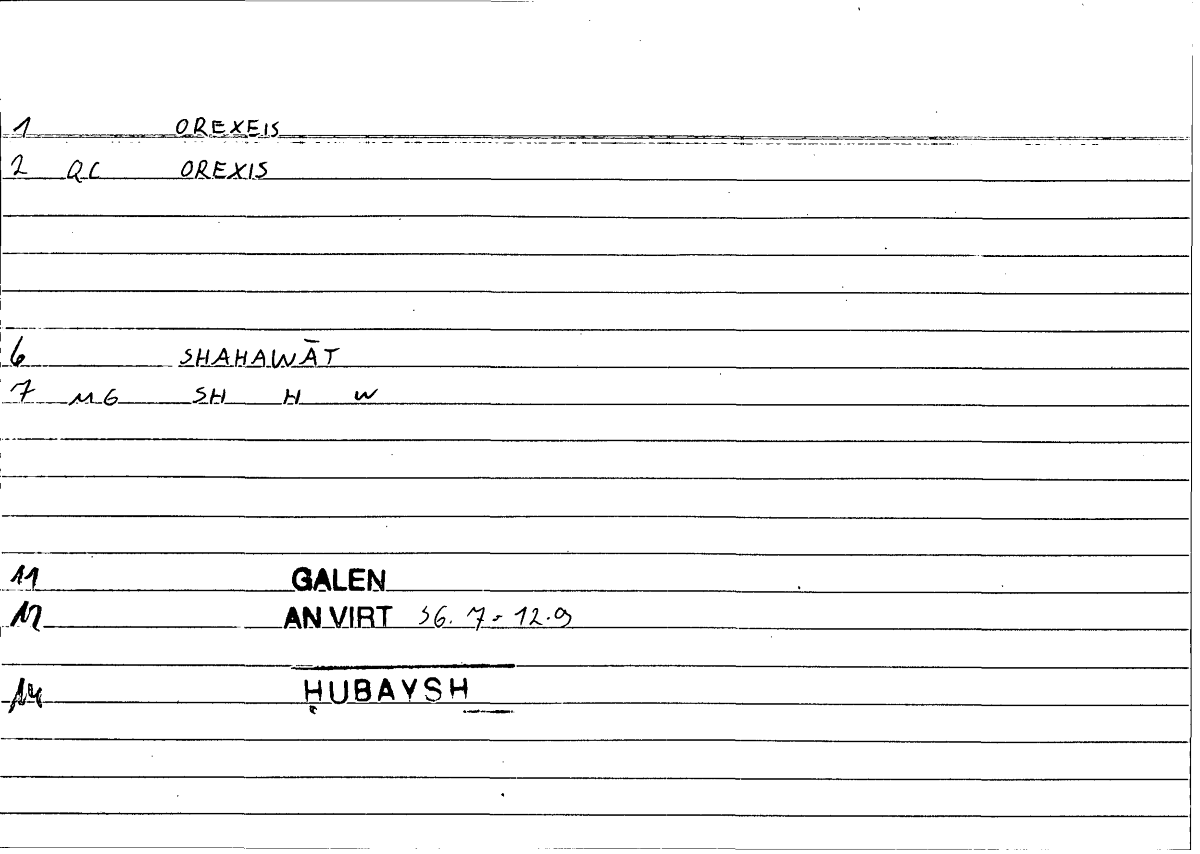 1 OREXEIS
2 QC OREXIS
6 SHAHAWĀT
7 MG SH H W
11 GALEN
12 AN VIRT 36. 7 - 12.9
14 ḤUBAYSH